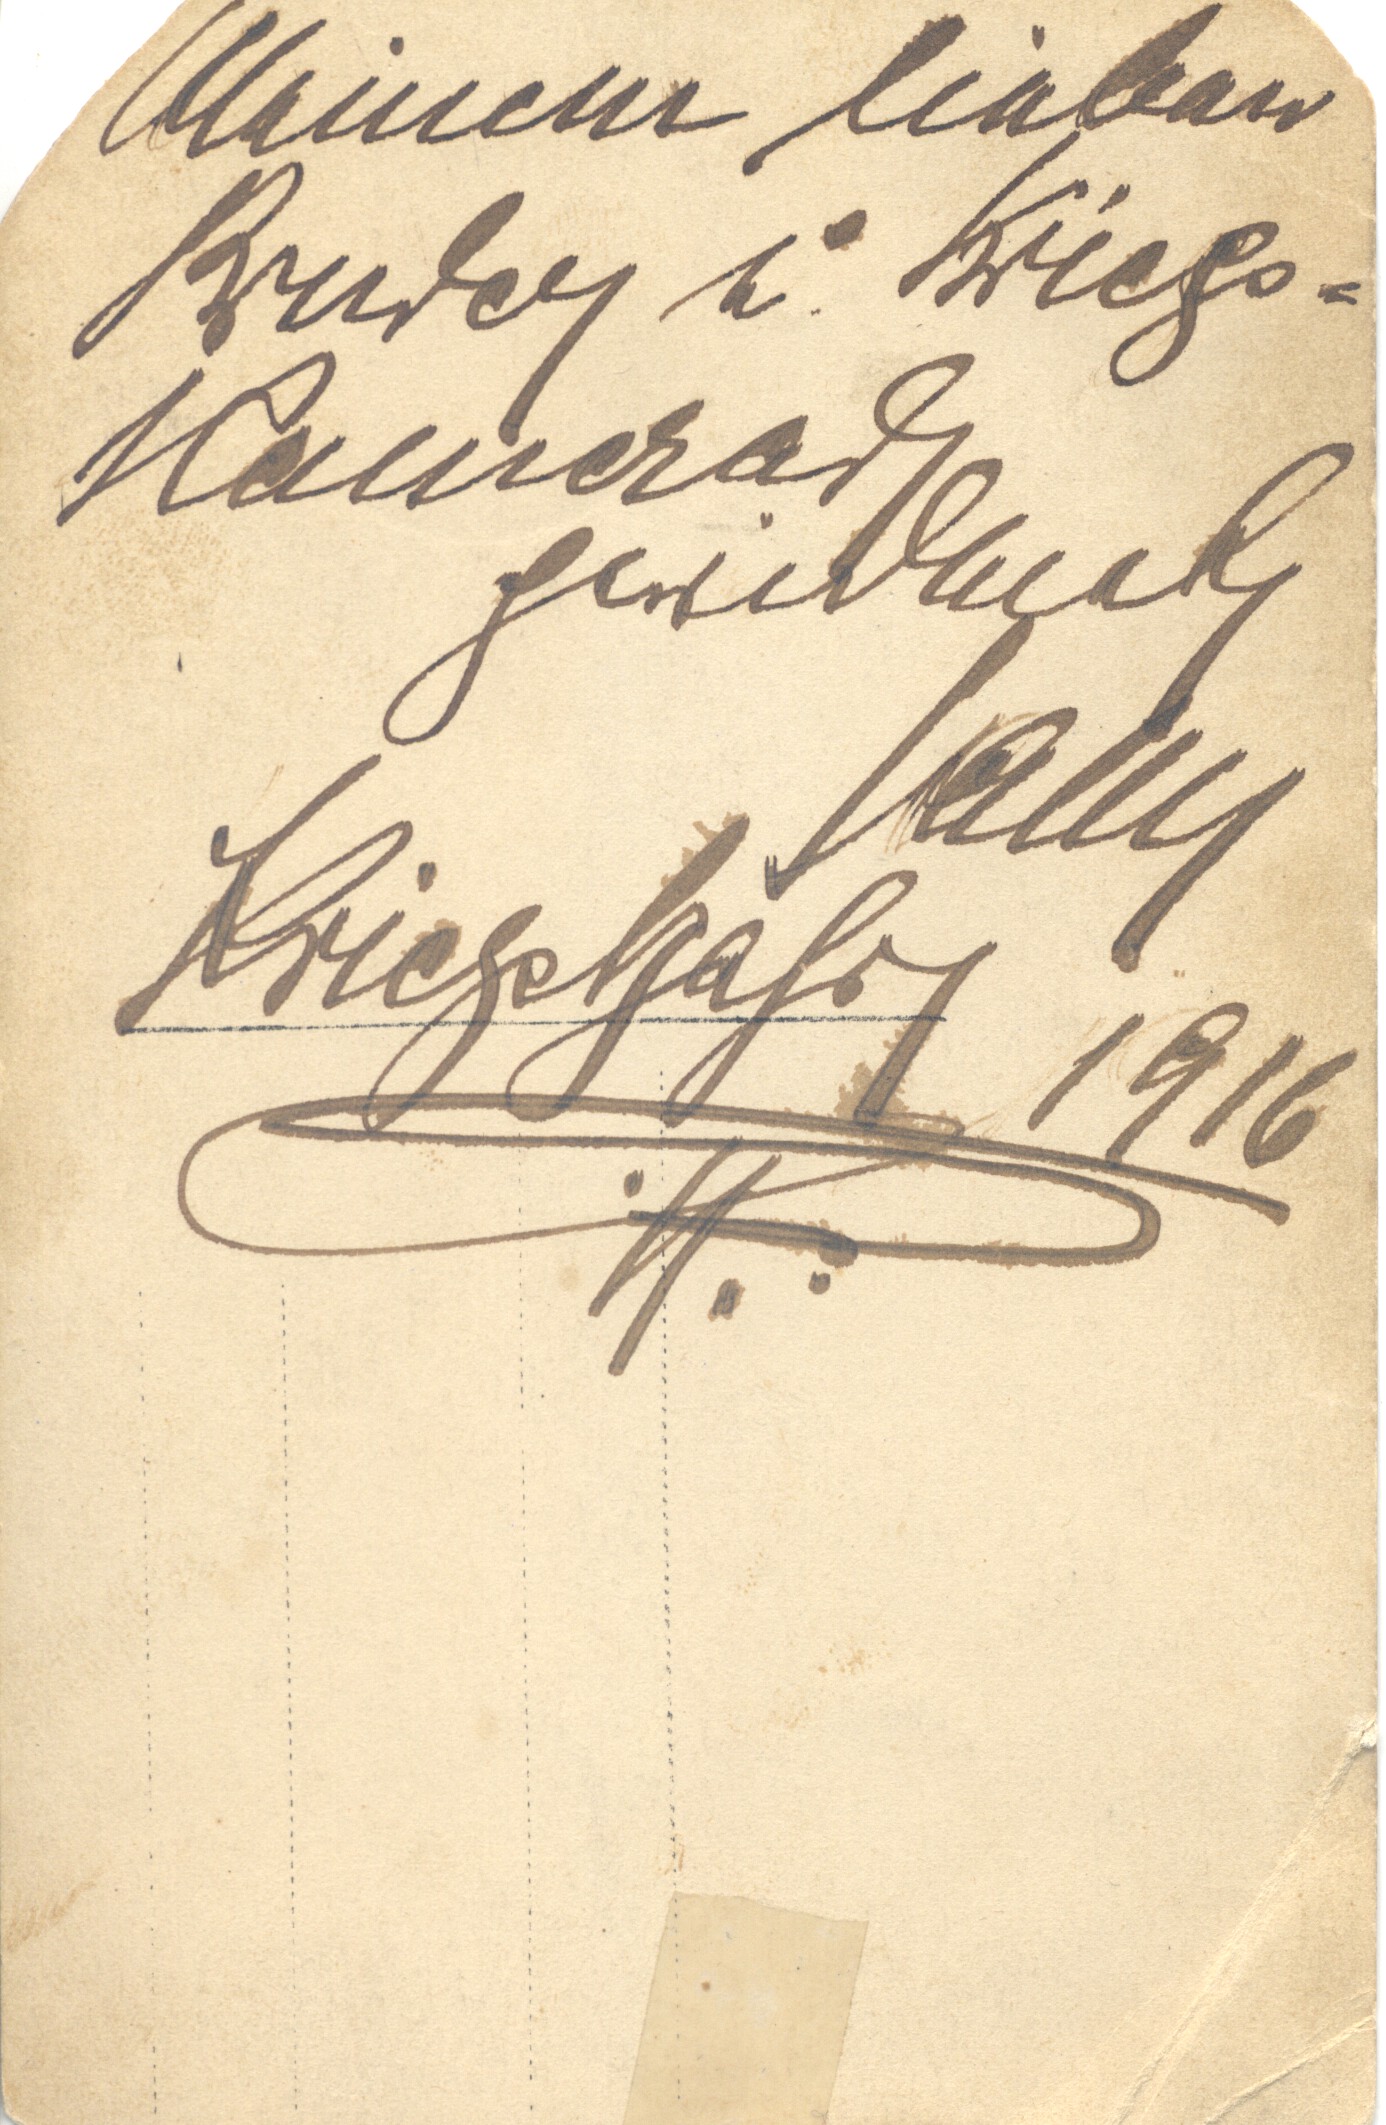 Meinem lieben
Bruder u. Kriegs=
Kamerad
gewidmet
Kriegsjahr
1916